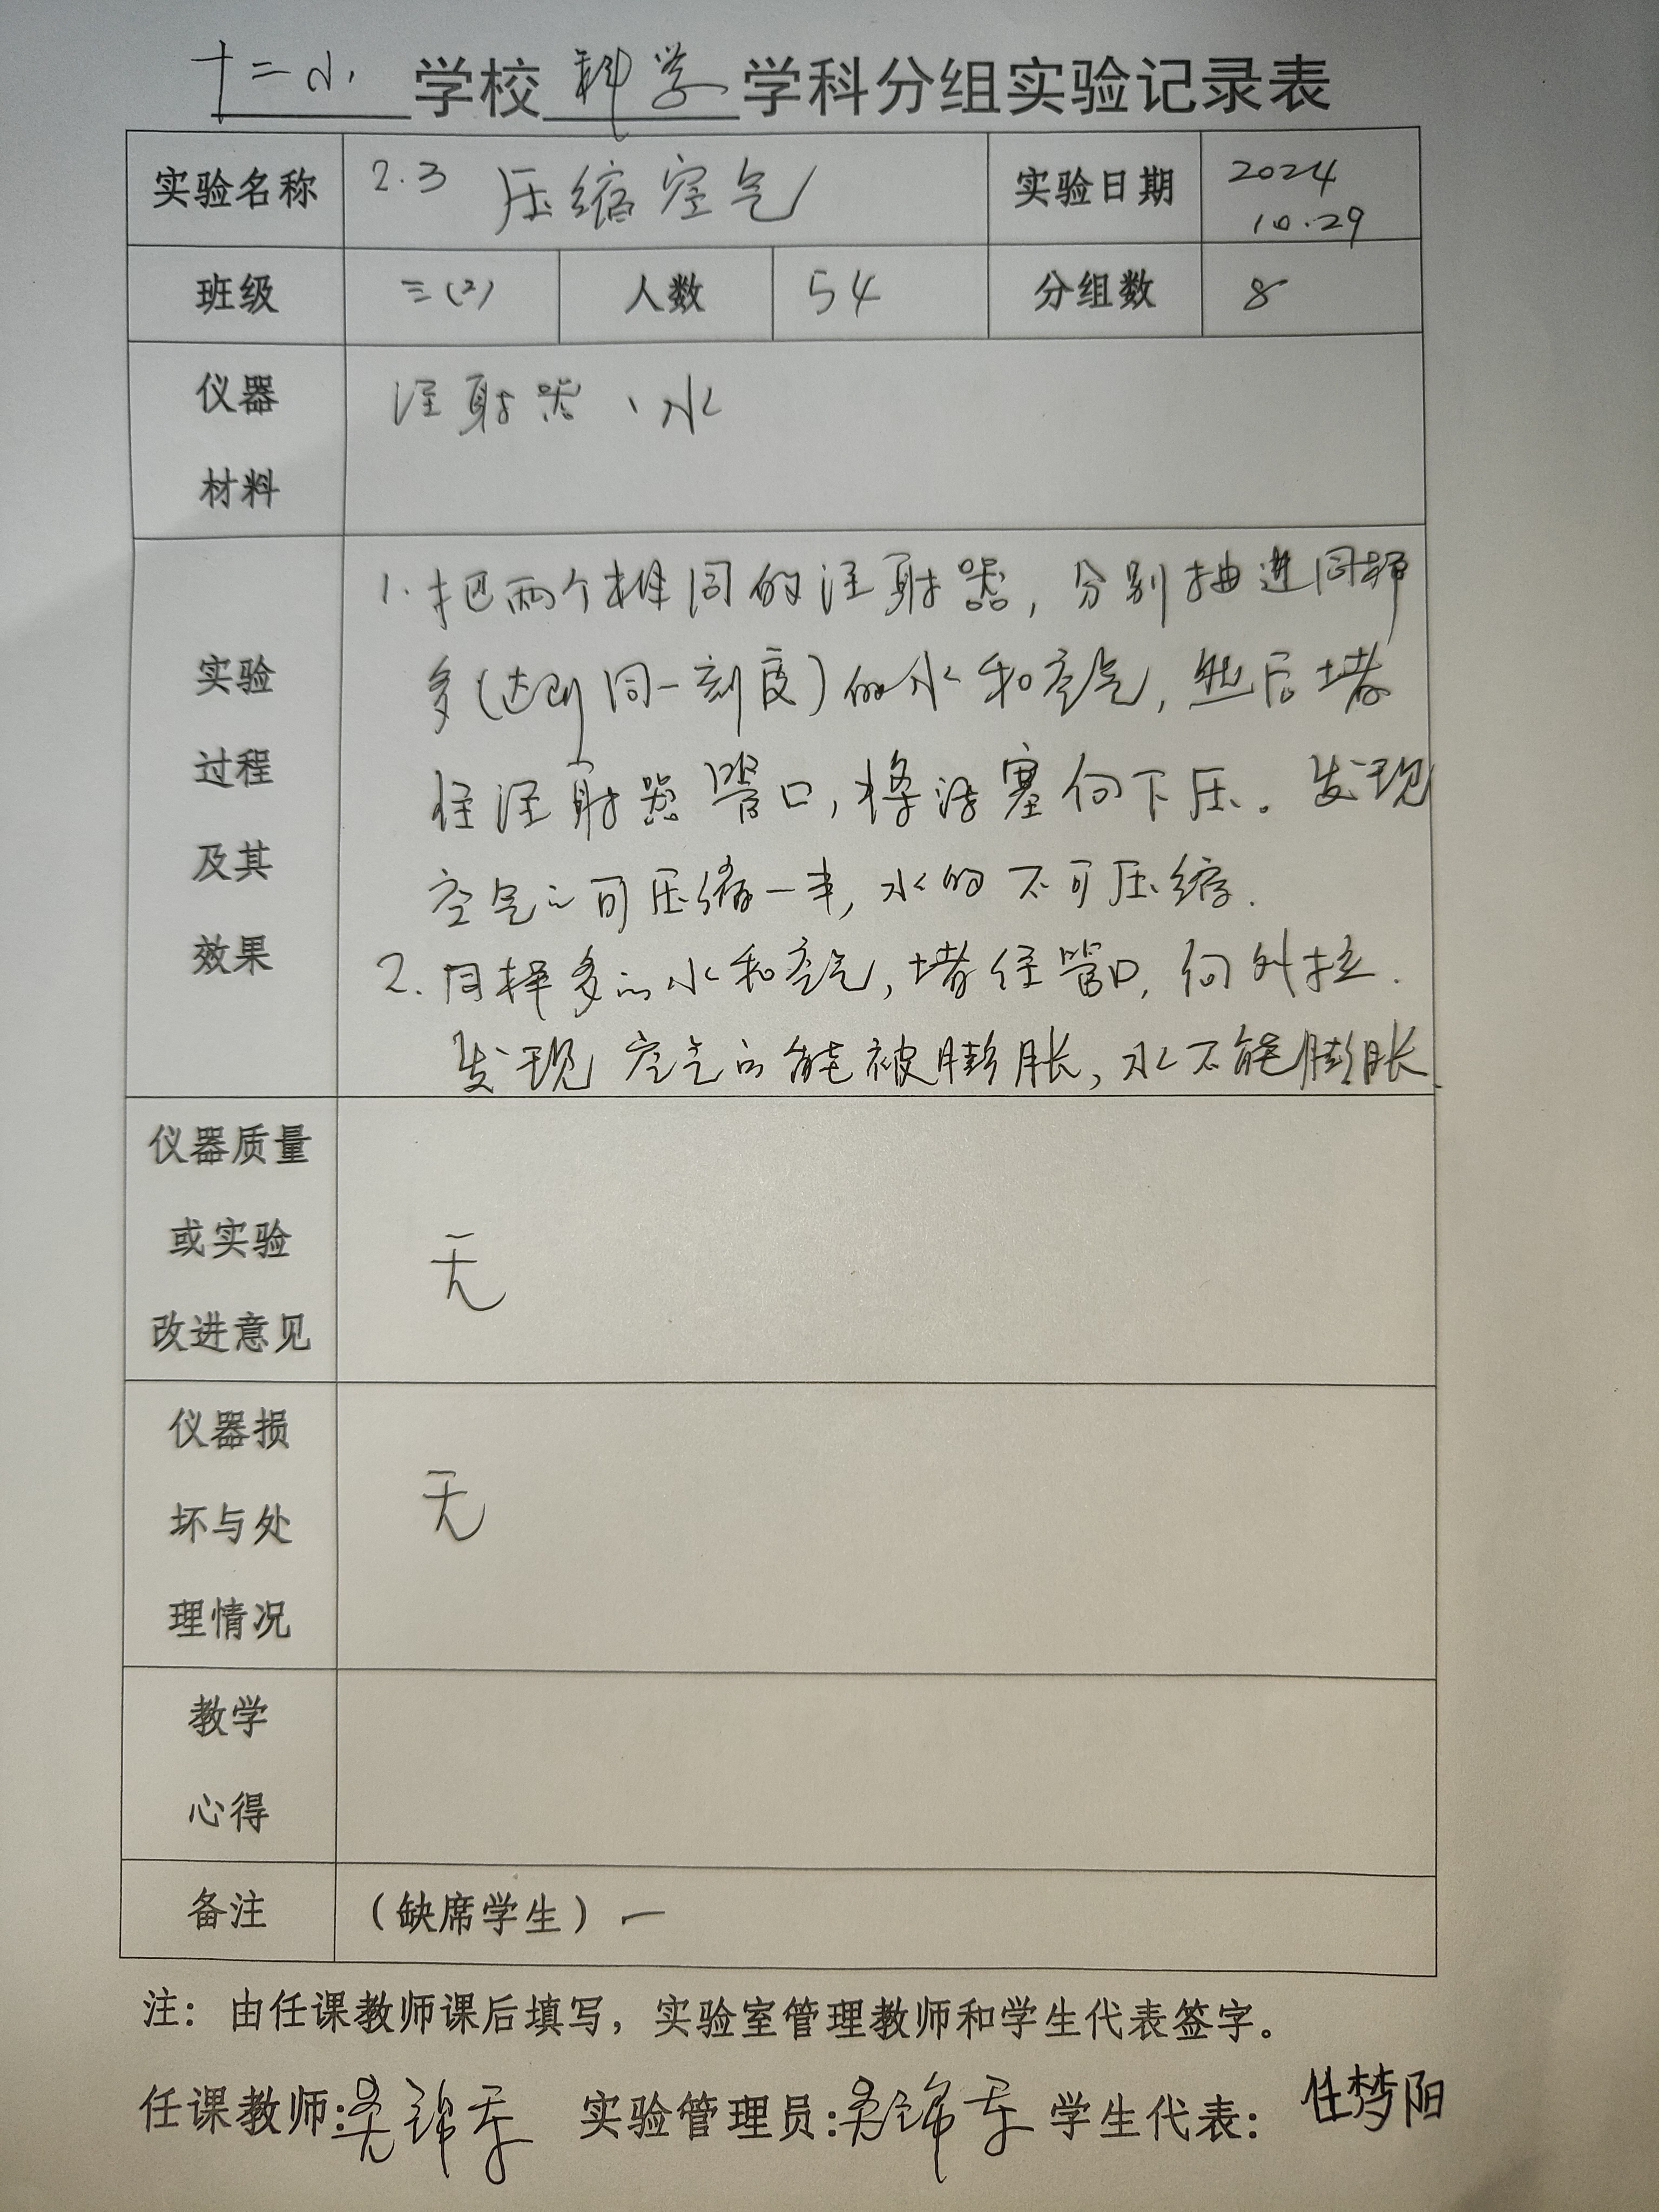 十二小学校科学学科分组实验记录表
实验名称 2.3 压缩空气 实验日期 2024
10.29
班级 三(2) 人数 54 分组数 8
仪器 注射器、水
材料
1. 把两个相同的注射器，分别抽进同样
实验 多(达到同一刻度)的水和空气，然后堵
过程 住注射器管口，将活塞向下压。发现
及其 空气的可压缩一半，水的不可压缩.
效果 2. 同样多的水和空气，堵住管口，向外拉.
发现空气的能被膨胀，水不能膨胀.
仪器质量
或实验 无
改进意见
仪器损
坏与处 无
理情况
教学
心得
备注 （缺席学生）一
注：由任课教师课后填写，实验室管理教师和学生代表签字。
任课教师: 实验管理员: 学生代表：任梦阳